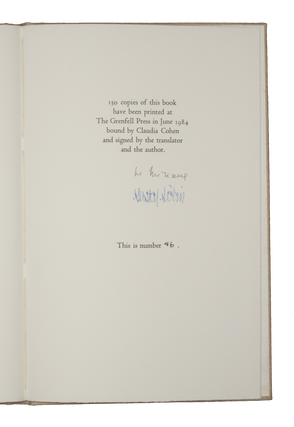 150 copies of this book
have been printed at
The Grenfell Press in June 1984
bound by Claudia Cohen
and signed by the translator
and the author.
This is number 46 .